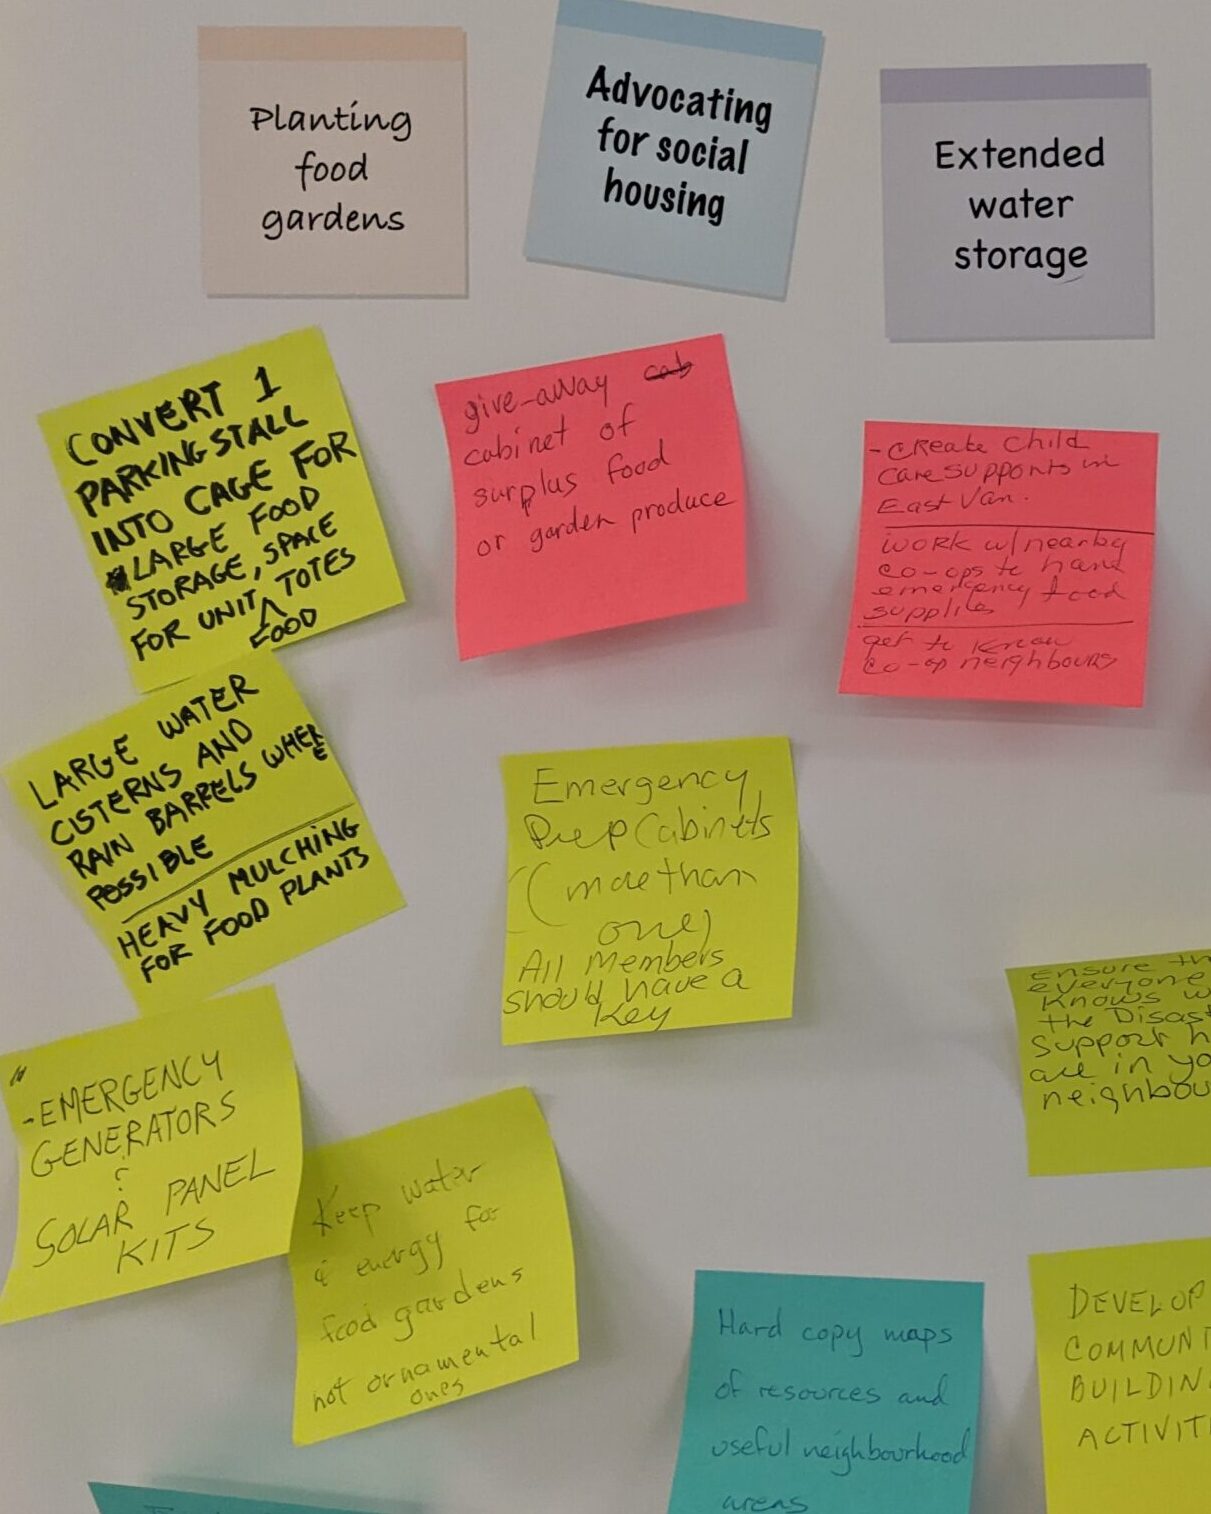 Planting
food
gardens
Advocating
for social
housing
Extended
water
storage
CONVERT 1
PARKING STALL
INTO CAGE FOR
LARGE FOOD
STORAGE, SPACE
FOR UNIT ^ TOTES
FOOD
give-away cab
cabinet of
surplus food
or garden produce
- create child
care supports in
East Van.
work w/ nearby
co-ops to hand
emergency food
supplies
get to know
co-op neighbours
LARGE WATER
CISTERNS AND
RAIN BARRELS WHERE
POSSIBLE
HEAVY MULCHING
FOR FOOD PLANTS
Emergency
Prep Cabinets
(more than
one)
All members
should have a
key
Ensure th
everyone
knows w
the Disast
support h
are in yo
neighbou
- EMERGENCY
GENERATORS
&
SOLAR PANEL
KITS
Keep water
& energy for
food gardens
not ornamental
ones
Hard copy maps
of resources and
useful neighbourhood
areas
DEVELOP
COMMUNI
BUILDIN
ACTIVITI